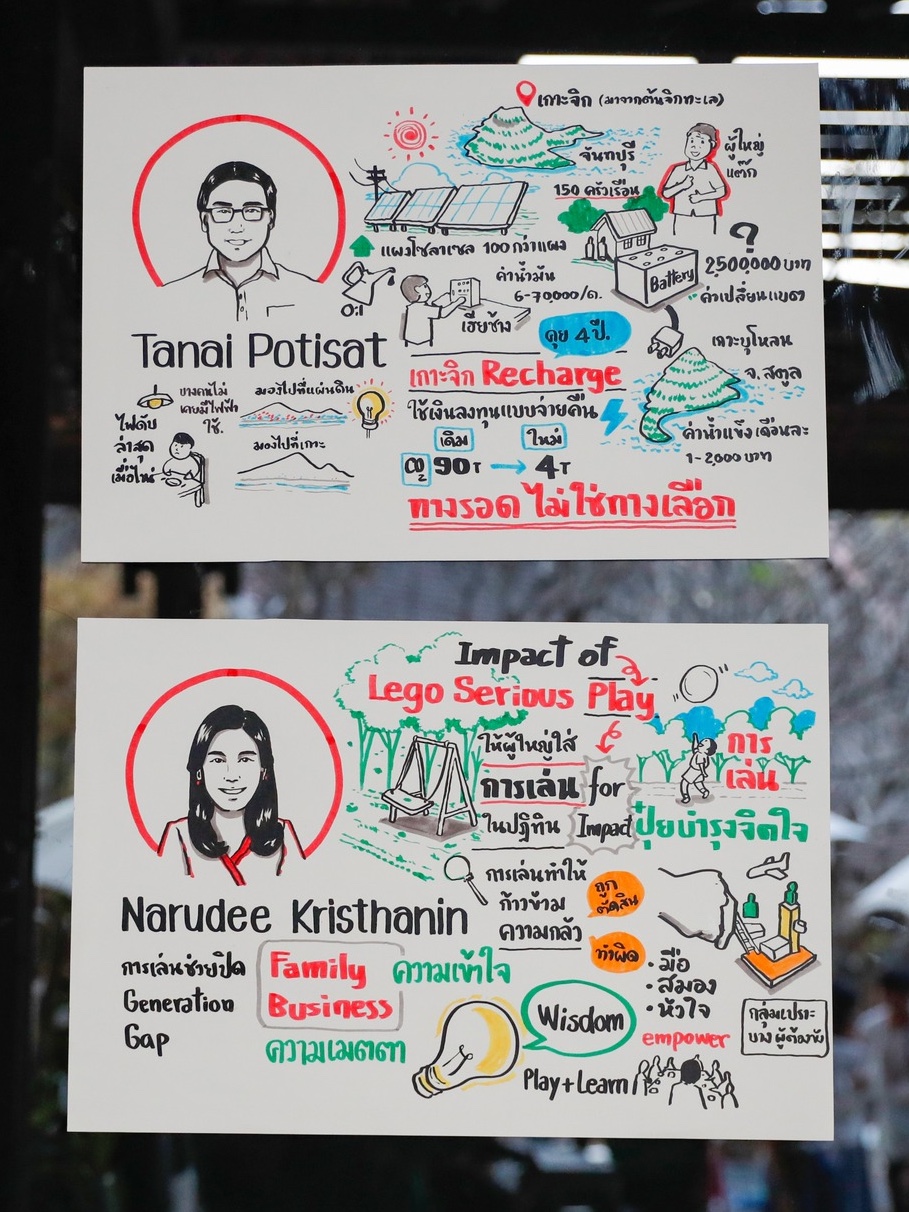 เกาะจิก (มาจากต้นจิกทะเล)
จันทบุรี
ผู้ใหญ่
แต๊ก
150 ครัวเรือน
แผงโซลาเซล 100 กว่าแผง
Battery
?
2,500,000 บาท
ค่าเปลี่ยนแบตฯ
Oil
ค่าน้ำมัน
6-70000/ด.
เฮียช้าง
คุย 4 ปี.
Tanai Potisat
เกาะจิก Recharge
ใช้เงินลงทุนแบบจ่ายคืน
เดิม
ใหม่
CO2 90T → 4T
ทางรอด ไม่ใช่ทางเลือก
เกาะบุโหลน
จ.สตูล
ค่าน้ำแข็งเดือนละ
1-2,000 บาท
บางคนไม่
เคยมีไฟฟ้า
ใช้.
ไฟดับ
ล่าสุด
เมื่อไหร่
มองไปที่แผ่นดิน
มองไปที่เกาะ
Impact of
Lego Serious Play
ให้ผู้ใหญ่ใส่
การเล่น for
ในปฏิทิน Impact
การ
เล่น
ปุ๋ยบำรุงจิตใจ
การเล่นทำให้
ก้าวข้าม
ความกลัว
ถูก
ตัดสิน
ทำผิด
Narudee Kristhanin
การเล่นช่วยปิด
Generation
Gap
Family
Business
ความเข้าใจ
ความเมตตา
Wisdom
Play+Learn
• มือ
• สมอง
• หัวใจ
empower
กลุ่มเปราะ
บาง ผู้ต้องขัง